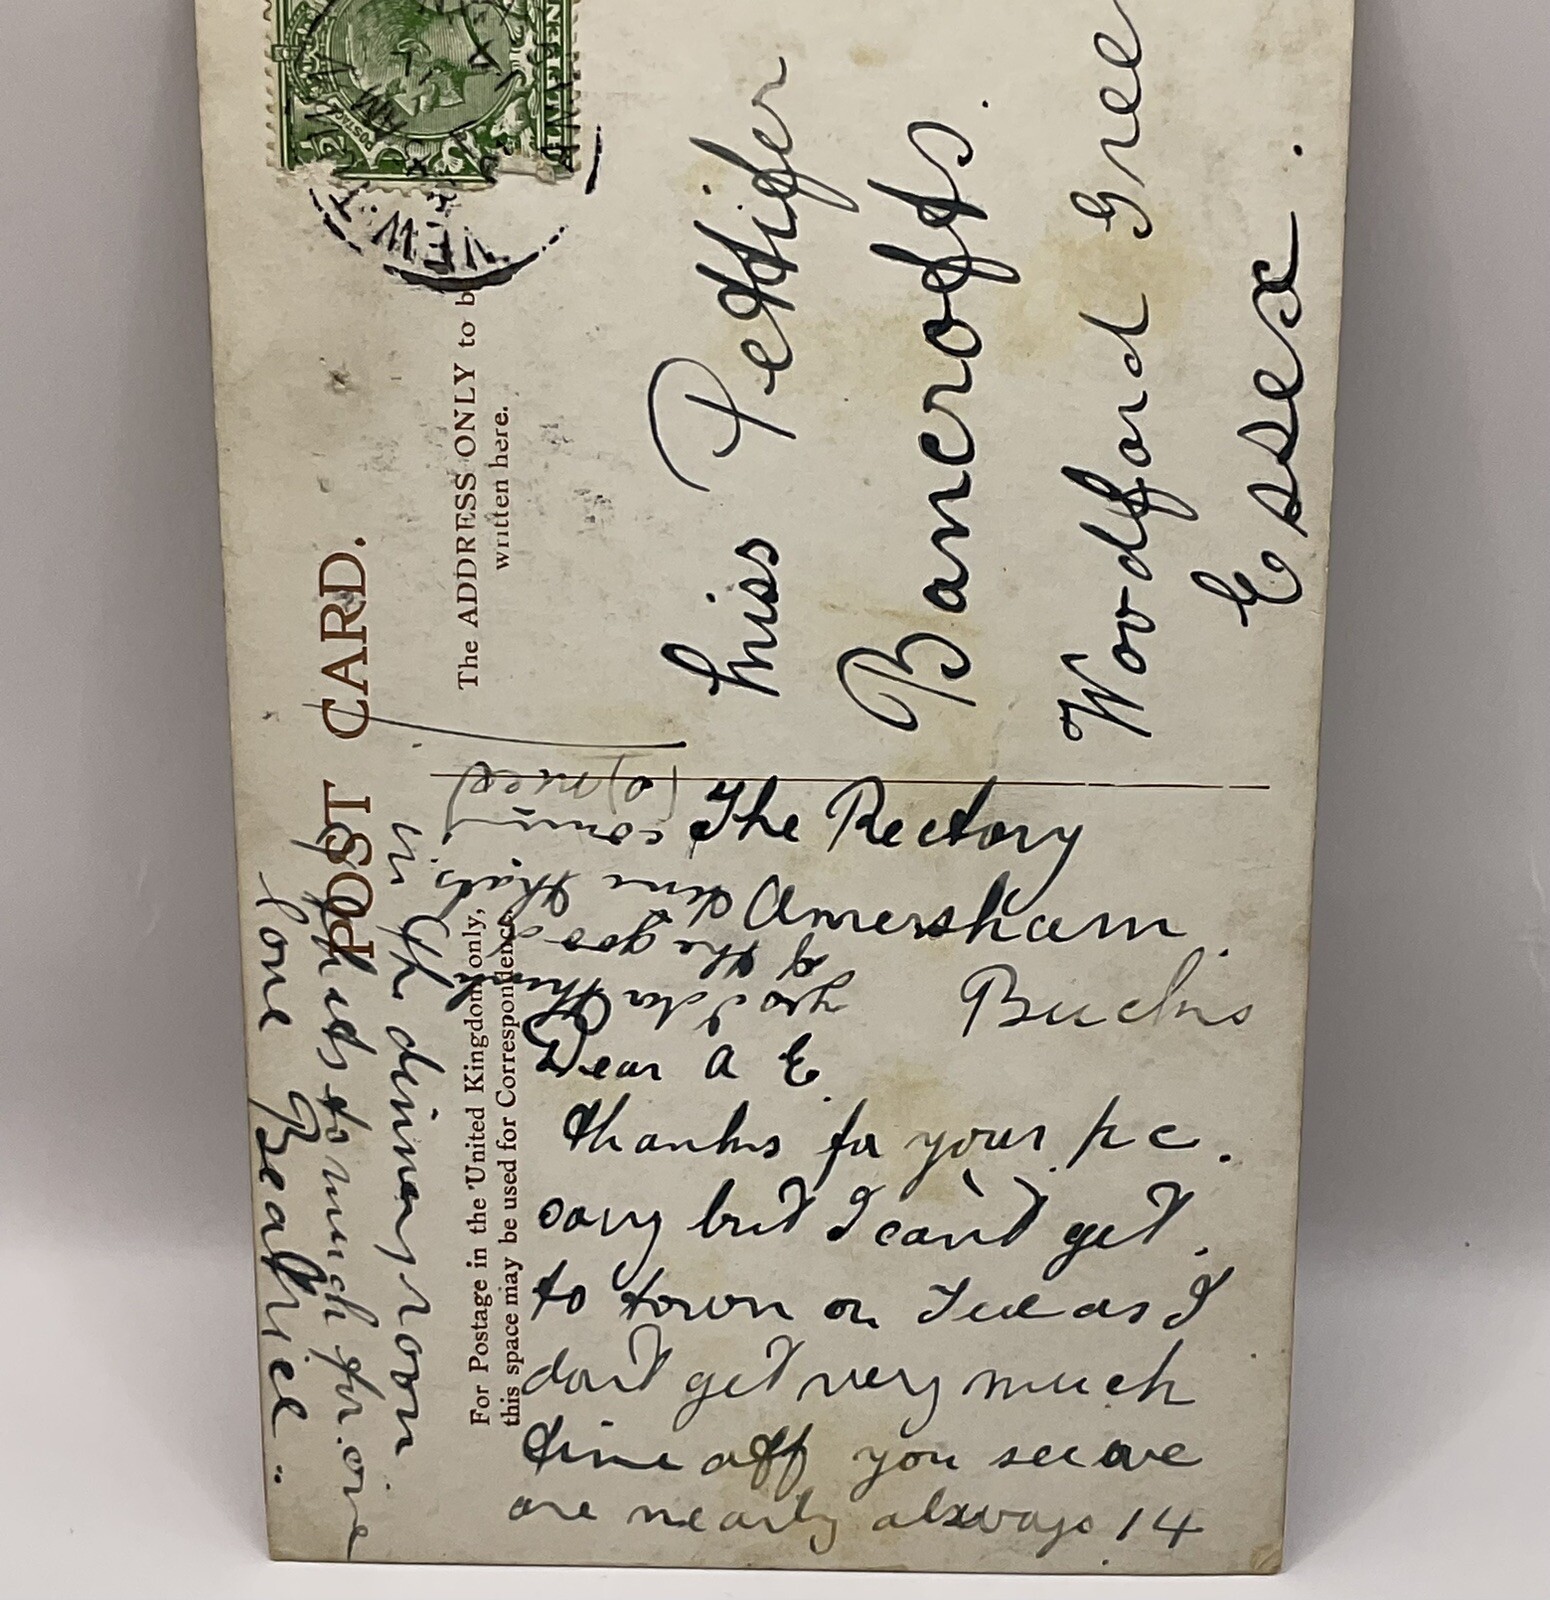 POST CARD.
For Postage in the United Kingdom only,
this space may be used for Correspondence.
The ADDRESS ONLY to be
written here.
Miss Pettifer
Bancrofts.
Woodford Gree
Essex.
The Rectory
Amersham.
Bucks
Dear A E.
thanks for your pc.
sorry but I can't get
to town on Tue as I
dont get very much
time off you see we
are nearly always 14
in the dining room
& its to much for one
love Beatrice.
good thing
of the good
time thats
coming